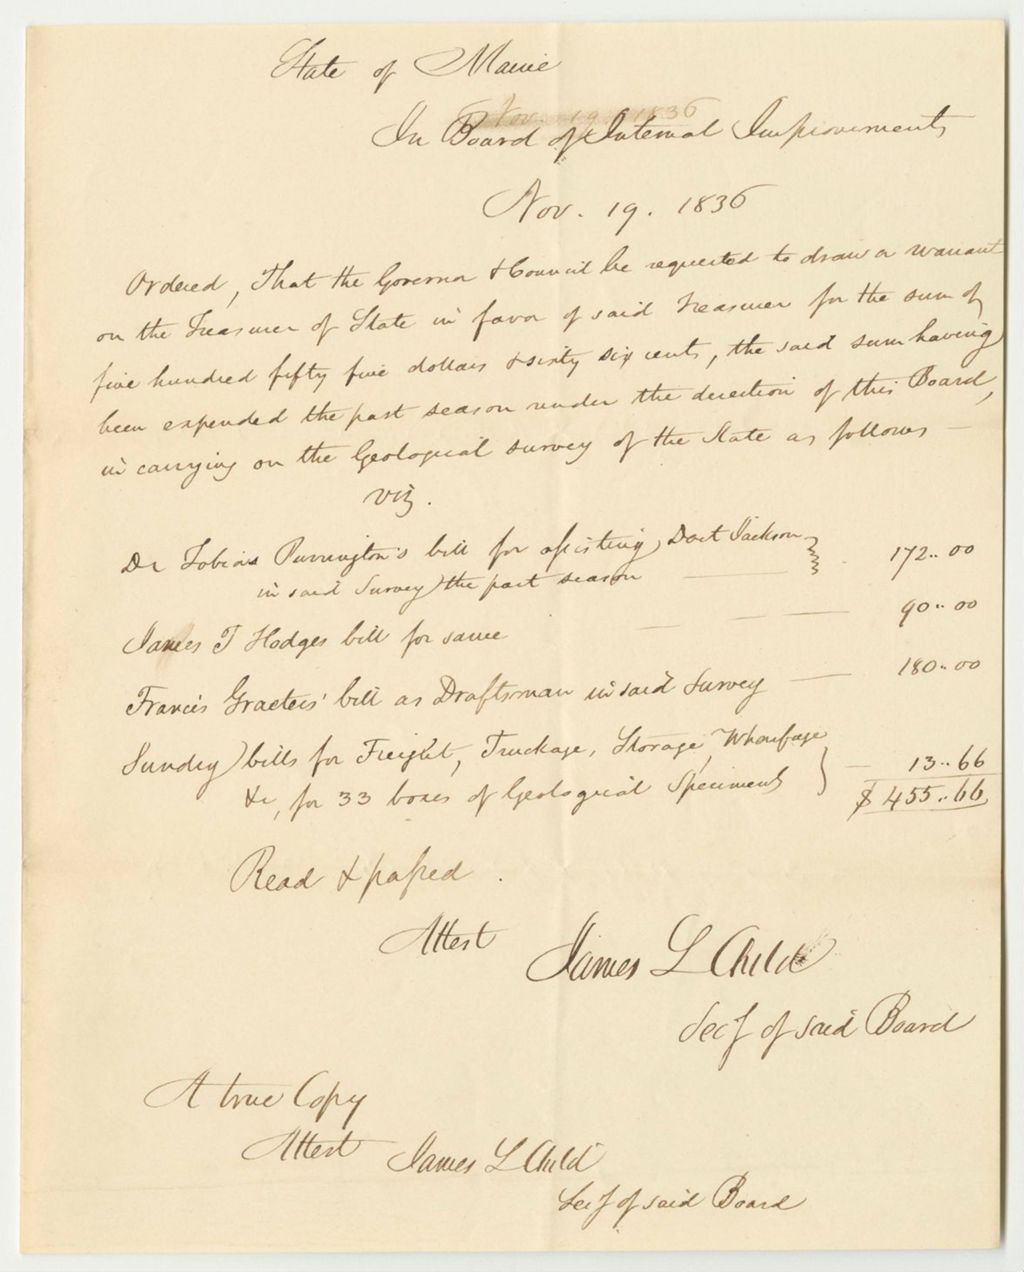 State of Maine
Nov. 19 1836
In Board of Internal Improvements
Nov. 19. 1836
Ordered, That the Governor & Council be requested to draw a warrant
on the Treasurer of State in favor of said Treasurer for the sum of
five hundred fifty five dollars & sixty six cents, the said sum having
been expended the past season under the direction of this Board,
in carrying on the Geological survey of the State as follows —
viz.
Dr Tobias Purrington's bill for assisting Doct Jackson
in said Survey the past season — 172..00
James T Hodges bill for same — — — 90..00
Francis Graeters' bill as Draftsman in said Survey — 180..00
Sundry bills for Freight, Truckage, Storage, Wharfage
&c, for 33 boxes of Geological Specimens — 13..66
$ 455..66
Read & passed.
Attest
James L Child
Secy of said Board
A true Copy
Attest James L Child
Secy of said Board